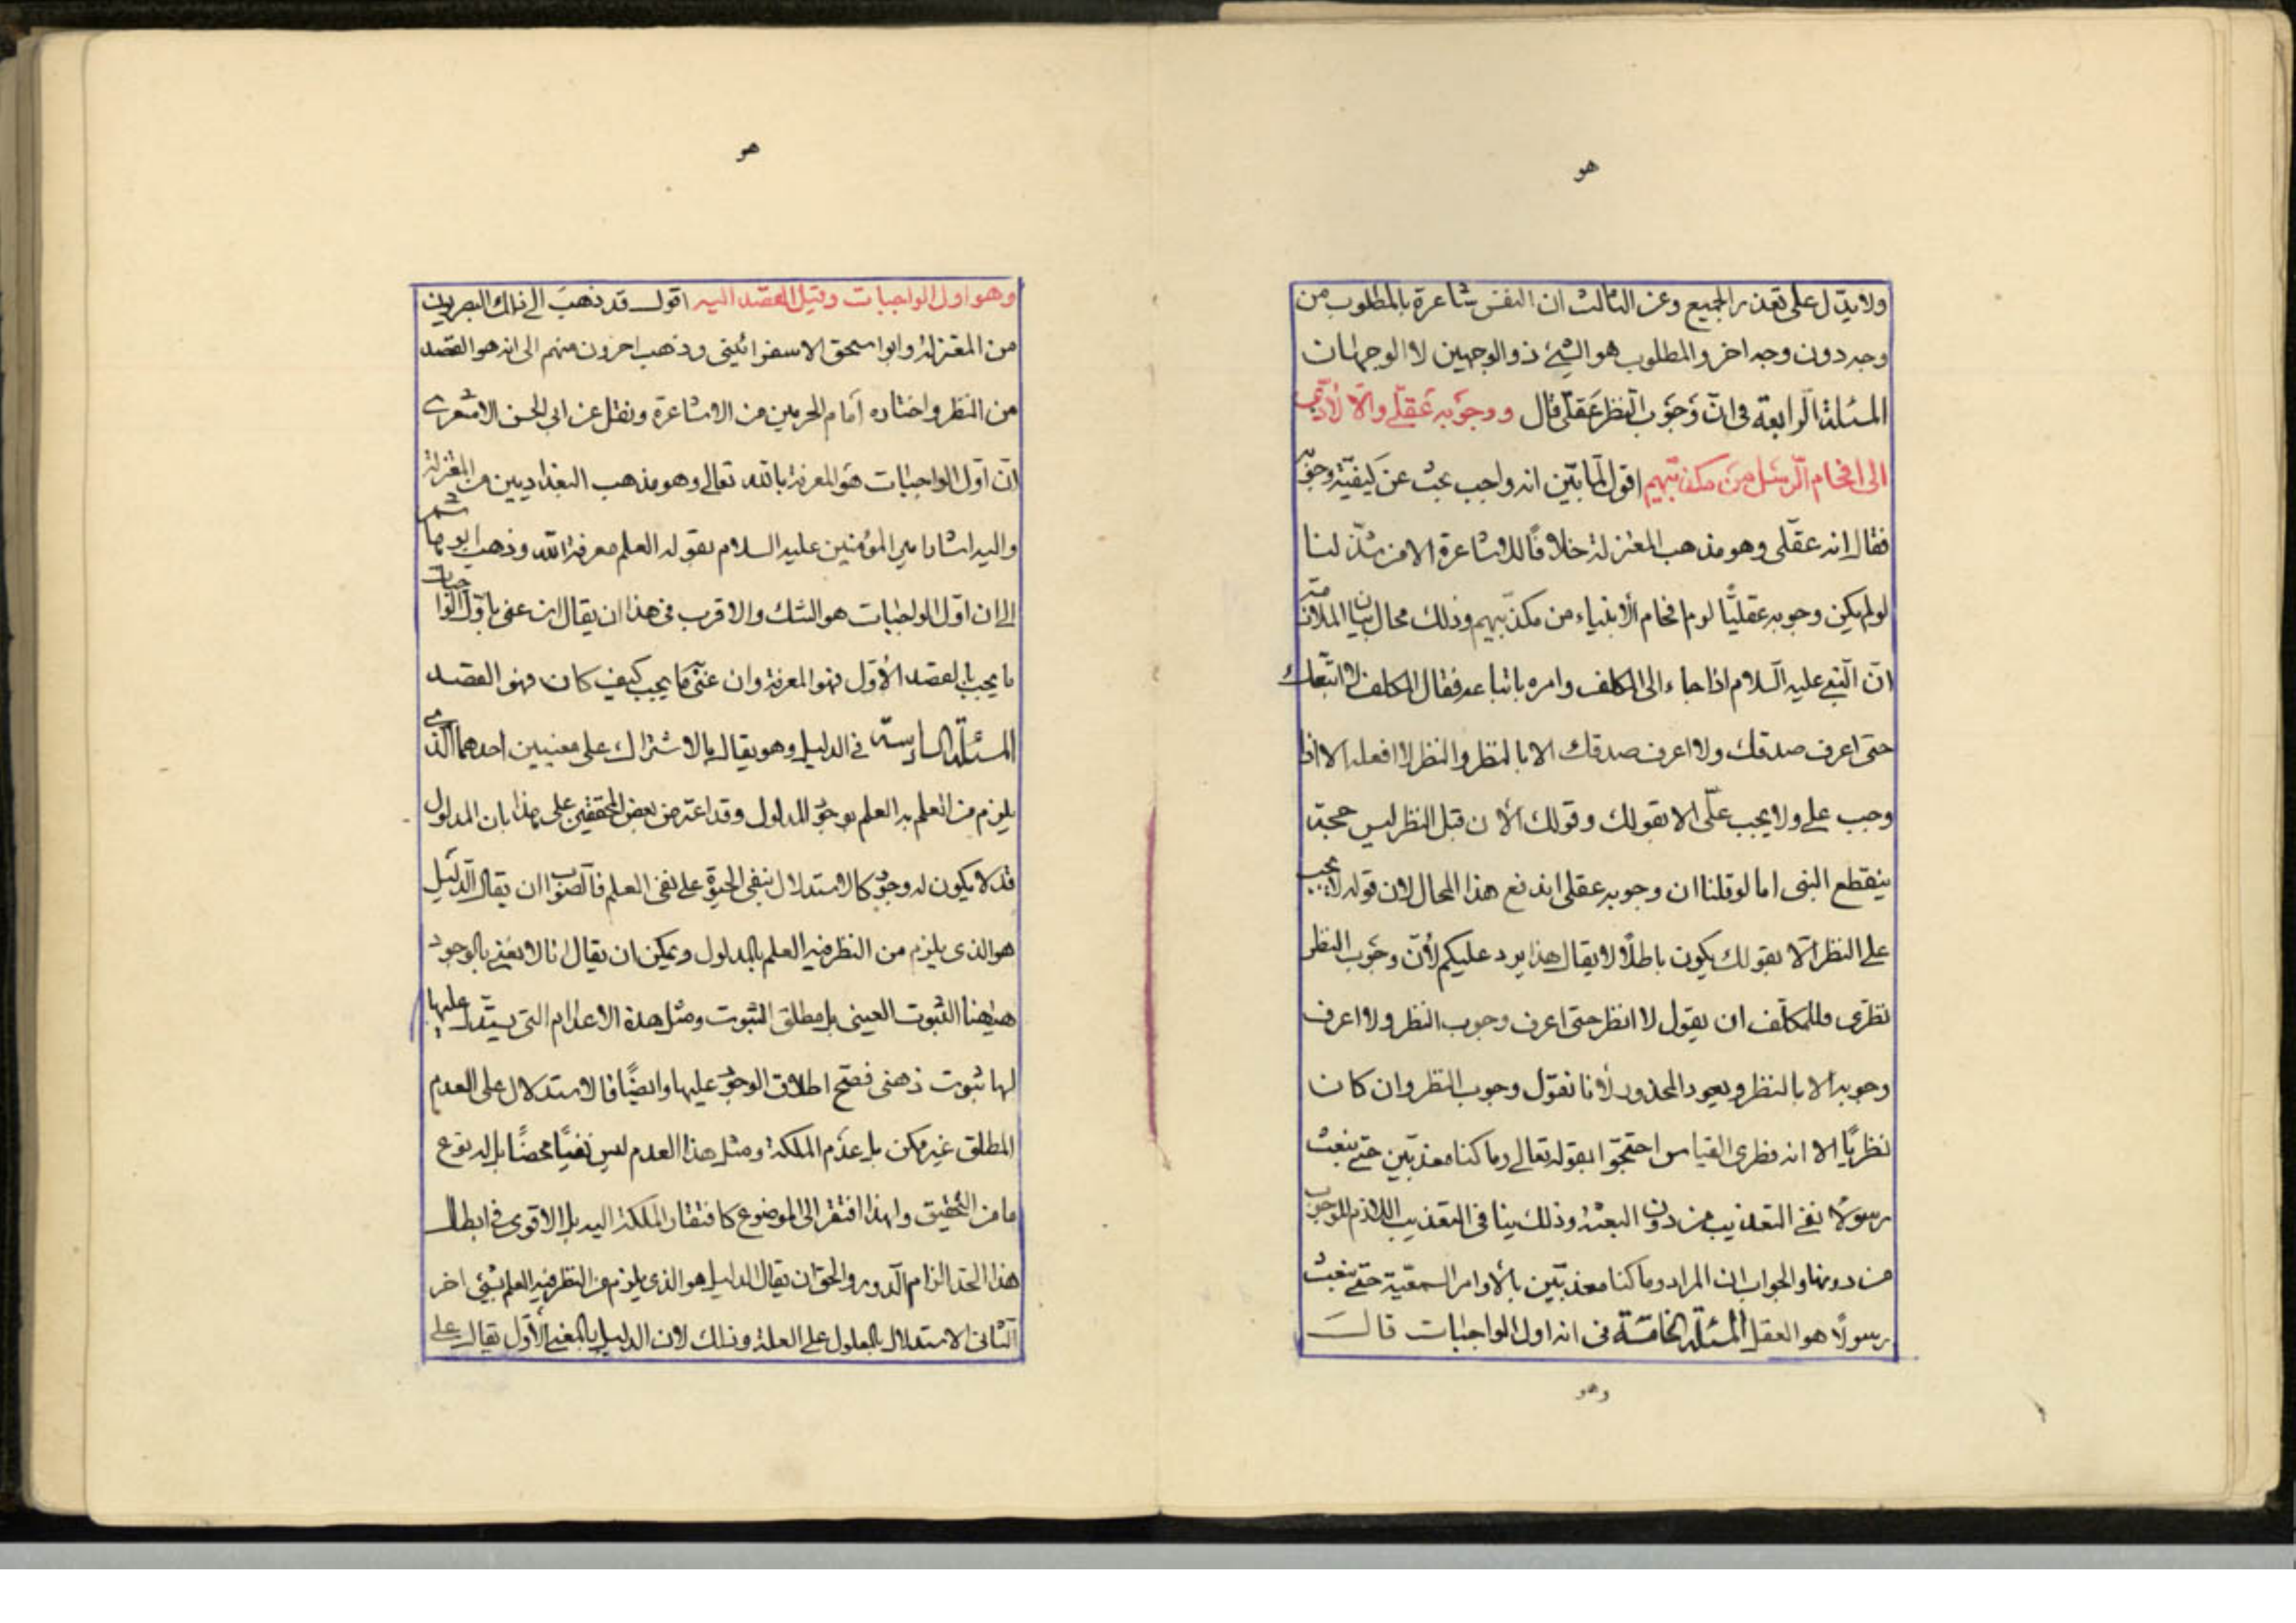 هو
ولا يدل على تعذر الجميع وعن الثالث ان النفس شاعرة بالمطلوب من
وجه دون وجه اخر والمطلوب هو الشيء ذو الوجهين لا الوجهان
المسئلة الرابعة فى انّ وجوب النظر عقلى قال ووجوبه عقلى والا لأدّى
الى افحام الرسل من مكذبيهم اقول لمّا بيّن انه واجب بحث عن كيفيّة وجوبه
فقال انه عقلى وهو مذهب المعتزلة خلافًا للاشاعرة الا من شذّ لنا
لو لم يكن وجوبه عقليًّا لزم افحام الأنبياء من مكذّبيهم وذلك محال بيان الملازمة
انّ النبى عليه السلام اذا جاء الى المكلف وامره باتباعه فقال المكلف لا اتبعك
حتى اعرف صدقك ولا اعرف صدقك الا بالنظر والنظر لا افعله الا اذا
وجب على ولا يجب علّى الا بقولك وقولك الأن قبل النظر ليس حجة
ينقطع النبى اما لو قلنا ان وجوبه عقلى اندفع هذا المحال لان قوله لا يجب
على النظر الّا بقولك يكون باطلًا لا يقال هذا يرد عليكم لأنّ وجوب النظر
نظرى فللمكلّف ان يقول لا انظر حتى اعرف وجوب النظر ولا اعرف
وجوبه الا بالنظر ويعود المحذور لأنا نقول وجوب النظر وان كان
نظريًا الا انه فطرى القياس احتجّوا بقوله تعالى وما كنا معذبين حتى نبعث
رسولًا نفى التعذيب من دون البعثة وذلك ينافى التعذيب اللازم للوجوب
من دونها والجواب ان المراد وما كنا معذبين بالأوامر السمعيّة حتى نبعث
رسولًا هو العقل المسئلة الخامسة فى انه اول الواجبات قال
وهو
هو
وهو اول الواجبات وقيل القصد اليه اقول قد ذهب الى ذلك البصريون
من المعتزلة وابو اسحق الاسفرائينى وذهب اخرون منهم الى انه هو القصد
من النظر واختاره امام الحرمين من الاشاعرة ونقل عن ابى الحسن الاشعرى
انّ اوّل الواجبات هو المعرفة بالله تعالى وهو مذهب البغداديين من المعتزلة
واليه اشار امير المؤمنين عليه السلام بقوله العلم معرفة الله وذهب ابو هاشم
الى ان اوّل الواجبات هو الشك والاقرب فى هذا ان يقال ان عنى باوّل الواجبات
ما يجب بالقصد الأوّل فهو المعرفة وان عنى ما يجب كيف كان فهو القصد
المسئلة السادسة فى الدليل وهو يقال بالاشتراك على معنيين احدهما الذى
يلزم من العلم به العلم بوجود المدلول وقد اعترض بعض المحققين على هذا بان المدلول
قد لا يكون له وجود كالاستدلال بنفى الحيوة على نفى العلم فالصواب ان يقال الدّليل
هو الذى يلزم من النظر فيه العلم بالمدلول ويمكن ان يقال انا لا نعنى بالوجود
هيهنا الثبوت العينى بل مطلق الثبوت ومثل هذه الاعدام التى يستدل عليها
لها ثبوت ذهنى فصّح اطلاق الوجود عليها وايضًا فالاستدلال على العدم
المطلق غير ممكن بل عدم الملكة ومثل هذا العدم ليس نفيًا محضًا بل له نوع
ما من التحقيق ولهذا افتقر الى الموضوع كافتقار الملكة اليه بل الاقوى فى ابطال
هذا الحد الزام الدور والحق ان يقال الدليل هو الذى يلزم من النظر فيه العلم بشىء اخر
الثانى الاستدلال بالمعلول على العلة وذلك لان الدليل بالمعنى الأوّل يقال على